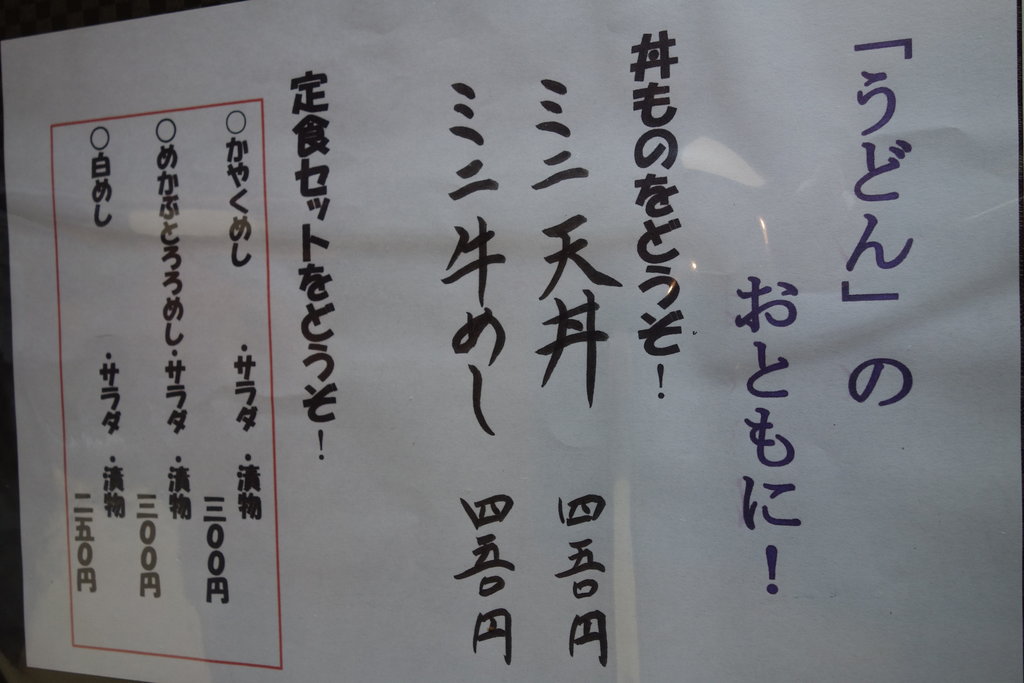 「うどん」の
おともに！
丼ものをどうぞ！
ミニ天丼 四五〇円
ミニ牛めし 四五〇円
定食セットをどうぞ！
○かやくめし ・サラダ ・漬物
三〇〇円
○めかぶとろろめし・サラダ ・漬物
三〇〇円
○白めし ・サラダ ・漬物
二五〇円